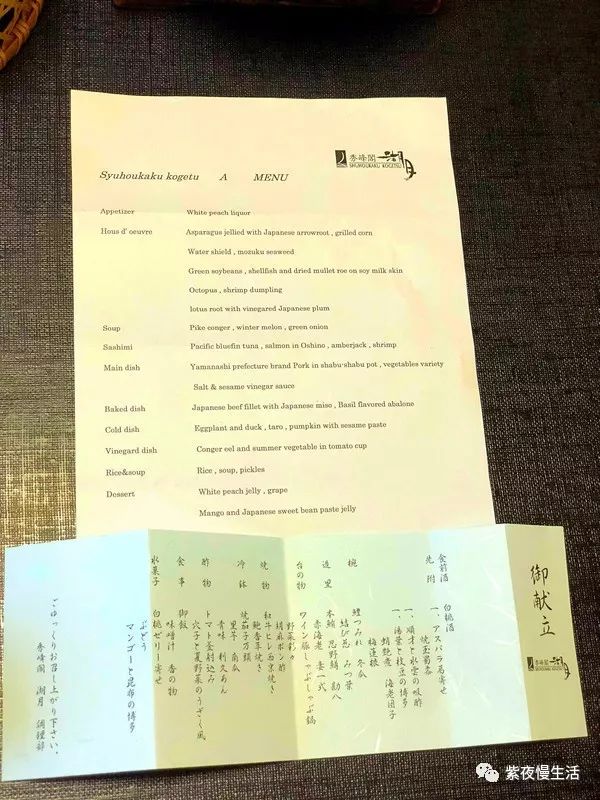 秀峰閣 湖月
SHUHOUKAKU KOGETSU
Syuhoukaku kogetu A MENU
Appetizer White peach liquor
Hous d' oeuvre Asparagus jellied with Japanese arrowroot , grilled corn
Water shield , mozuku seaweed
Green soybeans , shellfish and dried mullet roe on soy milk skin
Octopus , shrimp dumpling
lotus root with vinegared Japanese plum
Soup Pike conger , winter melon , green onion
Sashimi Pacific bluefin tuna , salmon in Oshino , amberjack , shrimp
Main dish Yamanashi prefecture brand Pork in shabu-shabu pot , vegetables variety
Salt & sesame vinegar sauce
Baked dish Japanese beef fillet with Japanese miso , Basil flavored abalone
Cold dish Eggplant and duck , taro , pumpkin with sesame paste
Vinegard dish Conger eel and summer vegetable in tomato cup
Rice&soup Rice , soup, pickles
Dessert White peach jelly , grape
Mango and Japanese sweet bean paste jelly
御献立
秀峰閣 湖月
SHUHOUKAKU KOGETSU
食前酒 白桃酒
先附 一、アスパラ葛寄せ
焼玉蜀黍
一、順才と水雲の吸酢
一、湯葉と枝豆の博多
蛸艶煮 海老団子
梅蓮根
椀 鱧つみれ 冬瓜
結び葱 みつ葉
造里 本鮪 忍野鱒 勘八
赤海老 妻一式
台の物 ワイン豚しゃぶしゃぶ鍋
野菜彩々
胡麻ポン酢
焼物 和牛ヒレ西京焼き
鮑香草焼き
冷鉢 焼茄子万頭
里芋 南瓜
青味 利久あん
酢物 トマト釜射込み
穴子と夏野菜のうざく風
食事 御飯
味噌汁 香の物
水菓子 白桃ゼリー寄せ
ぶどう
マンゴーと昆布の博多
ごゆっくりお召し上がり下さい。
秀峰閣 湖月 調理部
紫夜慢生活